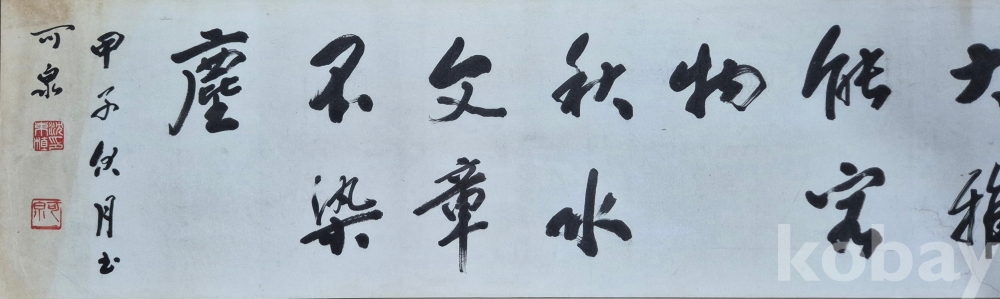 大雅
能容
物
秋水
文章
不染
塵
甲子伏月书
可泉
可泉
kobay